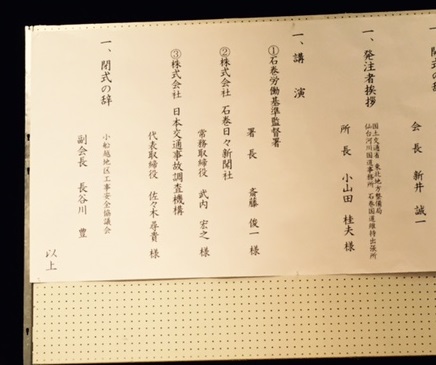 会長 新井 誠一
一、発注者挨拶
国土交通省 東北地方整備局
仙台河川国道事務所 石巻国道維持出張所
所長 小山田 桂夫 様
一、講演
①石巻労働基準監督署
署長 斎藤 俊一 様
②株式会社 石巻日々新聞社
常務取締役 武内 宏之 様
③株式会社 日本交通事故調査機構
代表取締役 佐々木 尋貴 様
一、閉式の辞
小船越地区工事安全協議会
副会長 長谷川 豊
以上